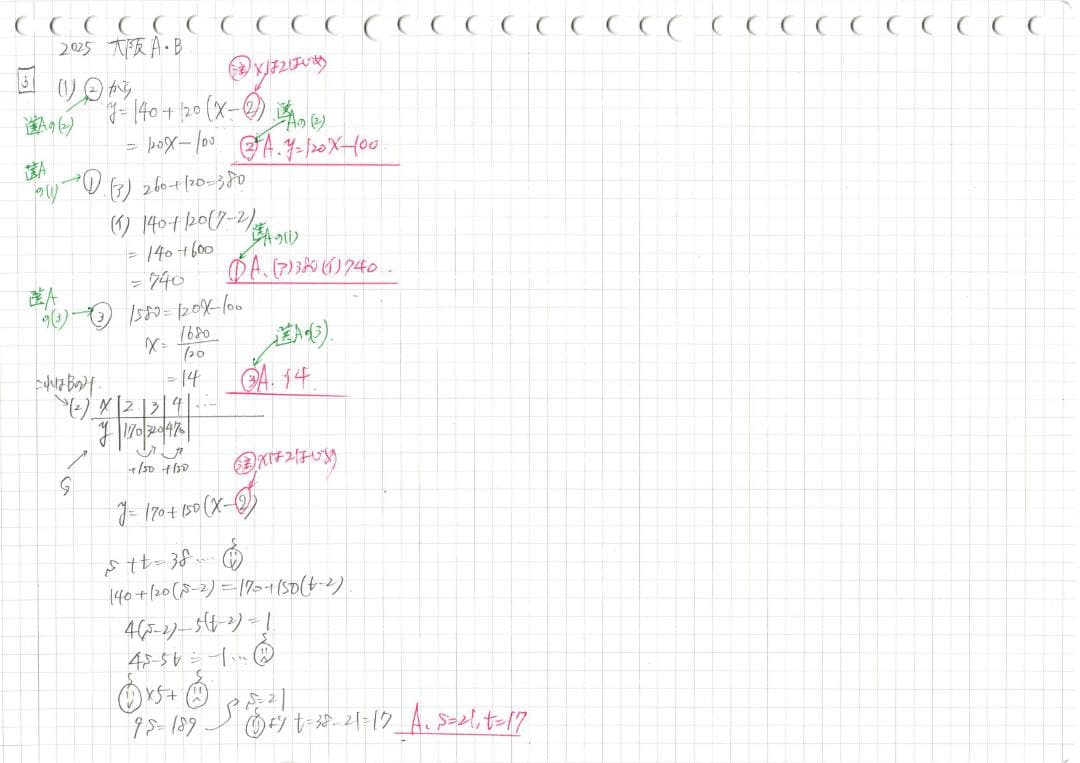 2025 大阪 A・B
3
(1) ②から
注 xは2はじめ
y=140+120(x-②)
=120x-100
選Aの(2)
選Aの(2)
②A、y=120x-100
選Aの(1)
① (ア) 260+120=380
(イ) 140+120(7-2)
=140+600
=740
選Aの(1)
①A、(ア)380(イ)740.
選Aの(3)
③ 1580=120x-100
x=1680/120
=14
選Aの(3).
③A. 14
これはBのみ.
(2) x 2 3 4 …
y 170 320 470
+150 +150
注 xは2はじめ
y=170+150(x-②)
s+t=38…
140+120(s-2)=170+150(t-2).
4(s-2)-5(t-2)=1
4s-5t=-1…
×5+
9s=189
s=21
より t=38-21=17
A、s=21, t=17